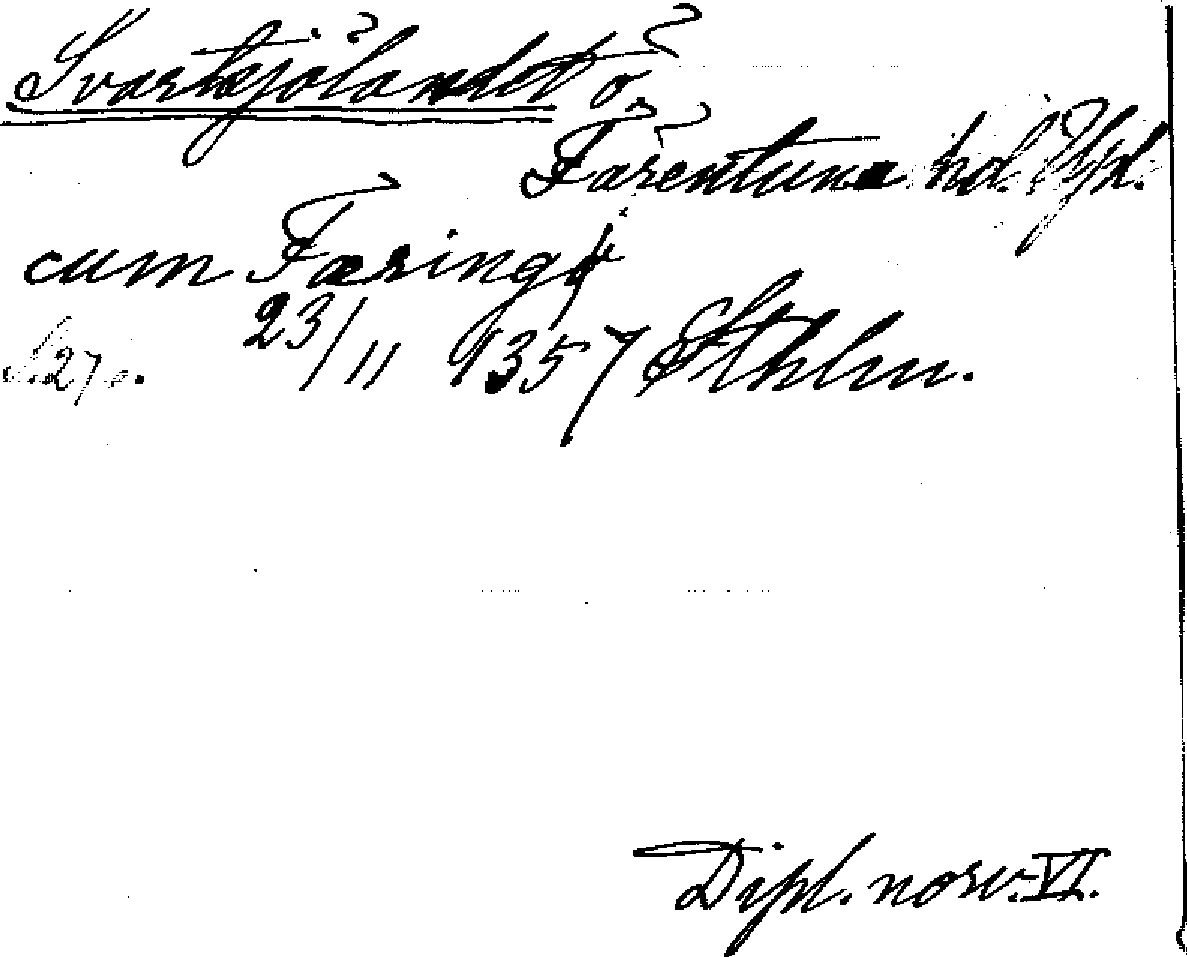 Svartsjölandet ö,
Färentuna hd. Upl.
cum Færingø
S. 276. 23/11 1357 Sthlm.
Dipl. norv. VI.